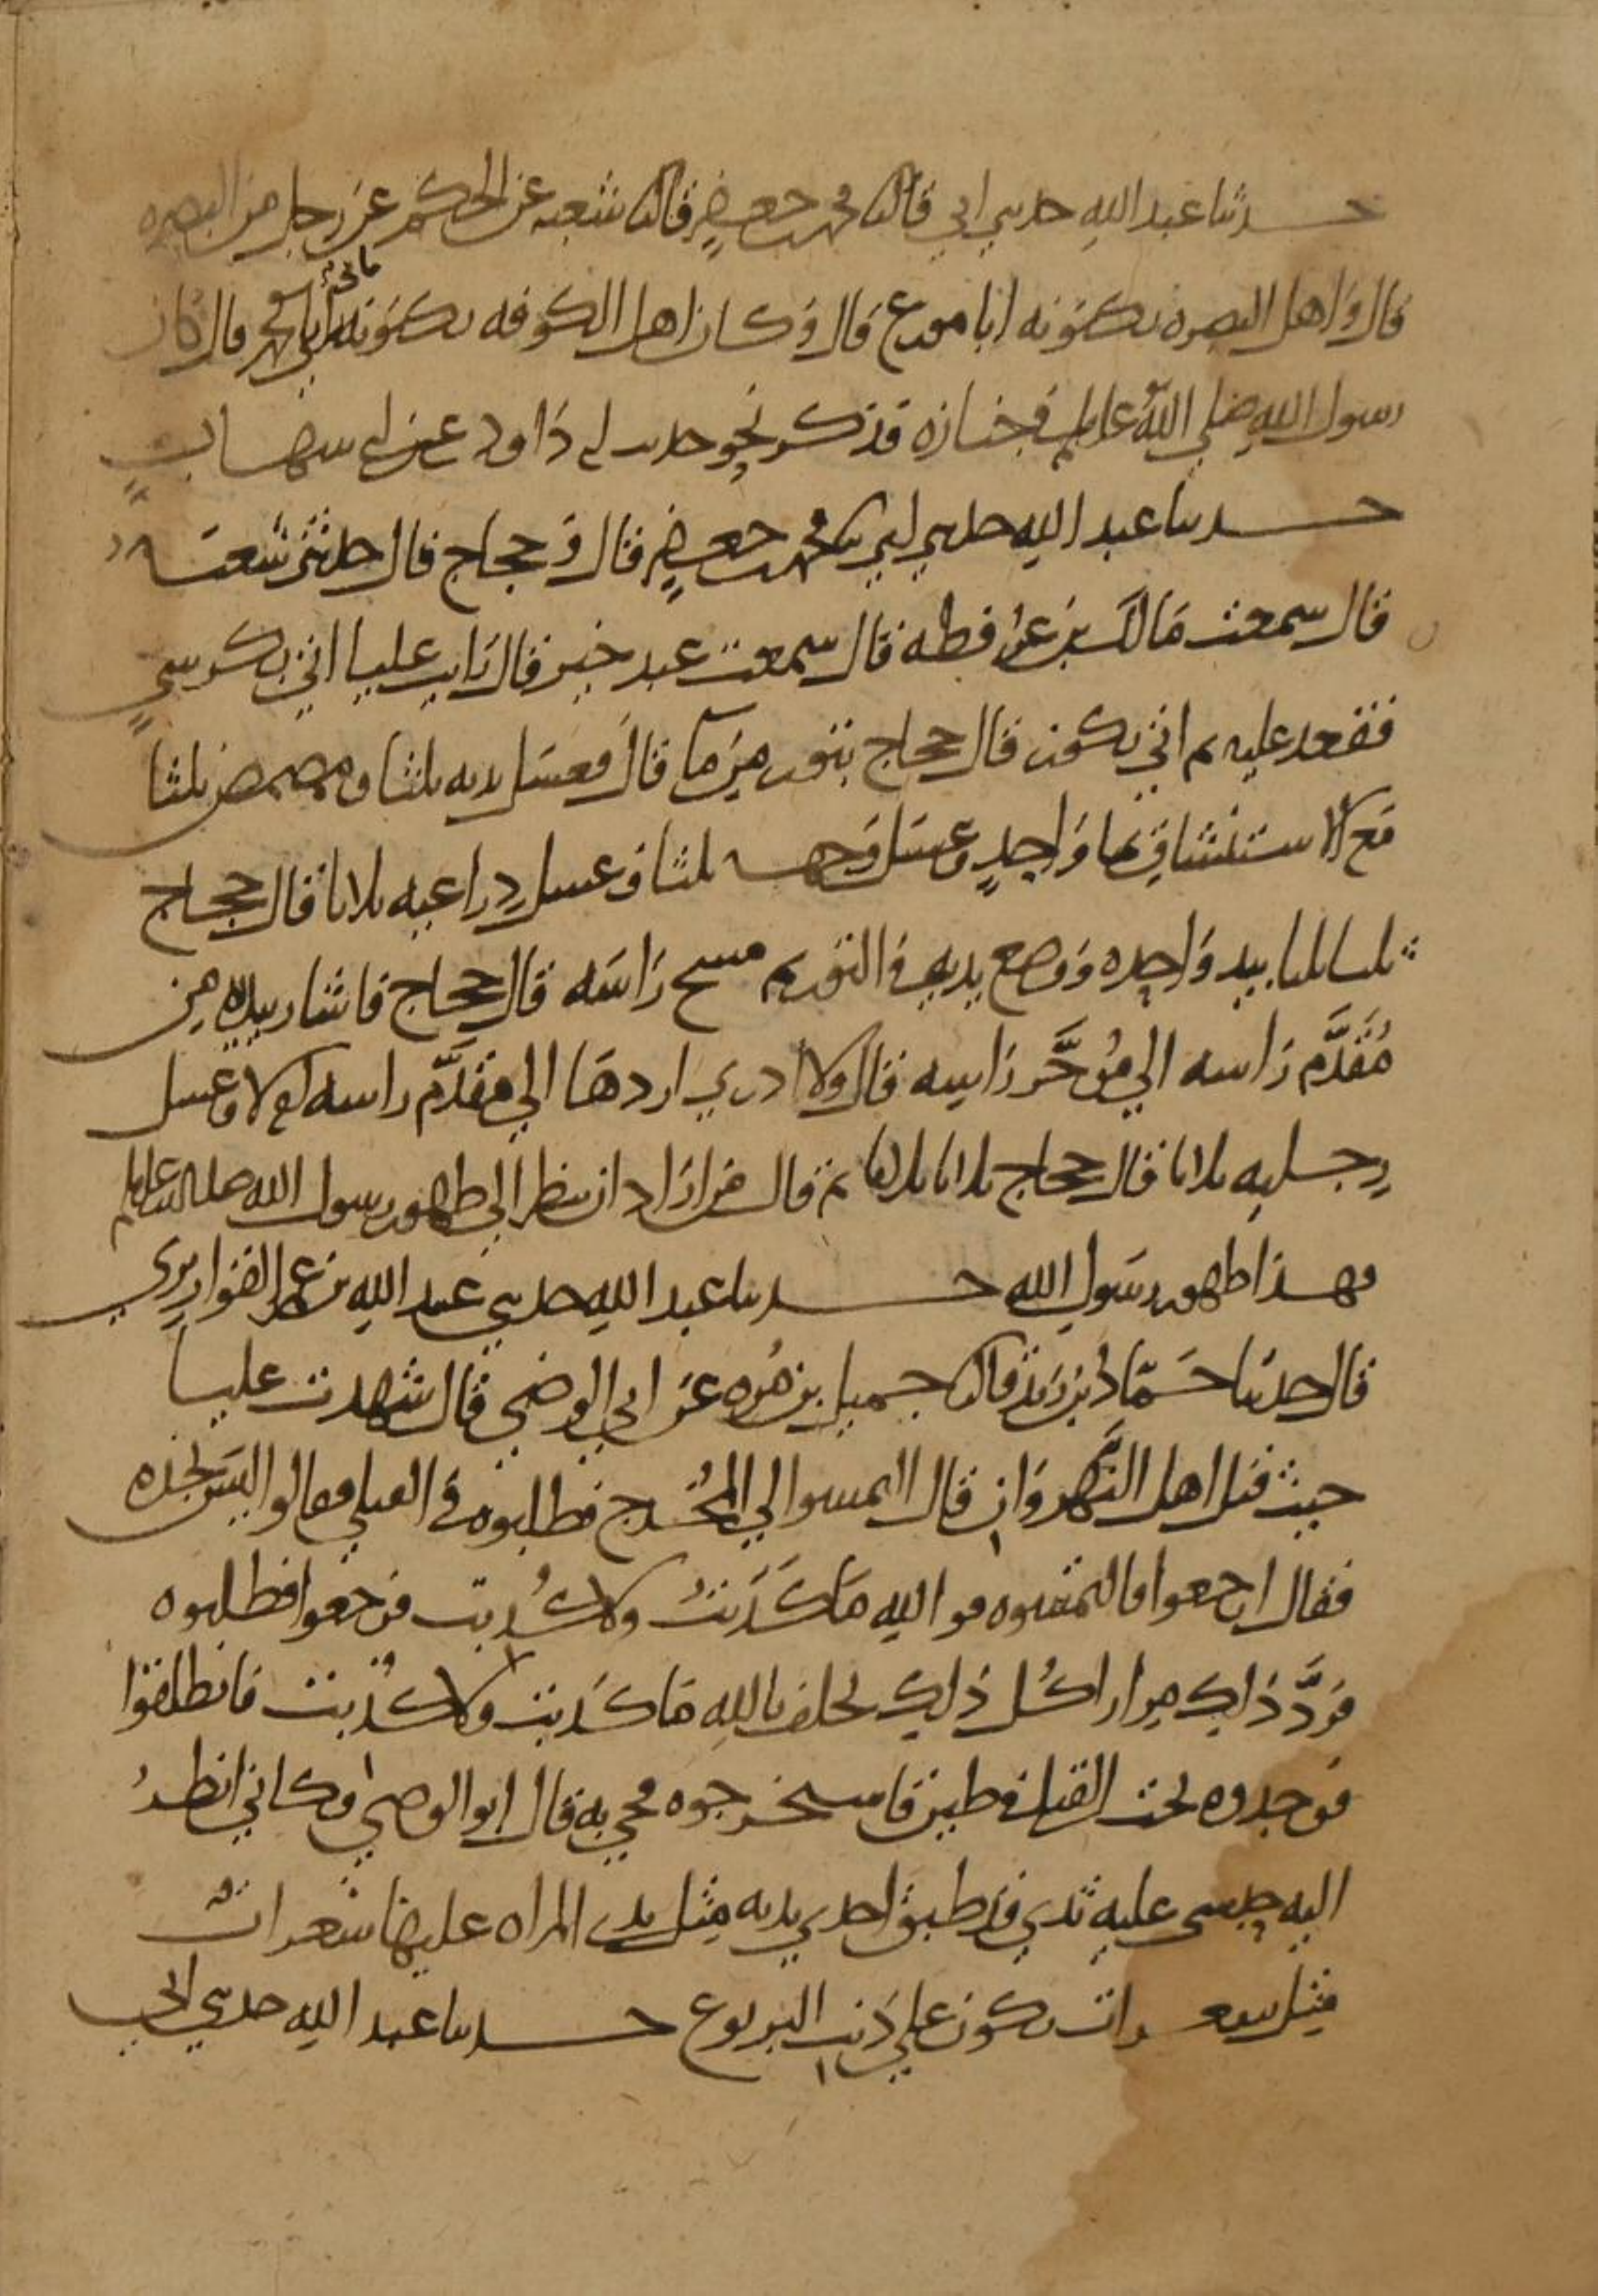 حدثنا عبد الله حدثني ابي قال ثنا محمد بن جعفر قال ثنا شعبه عن الحكم عن رجل من البصره
قال واهل البصره يكنونه ابا مورع قال وكان اهل الكوفه يكنونه بابي محمد قال كان
رسول الله صلى الله عليه وسلم في جنازه فذكر نحو حديث ابي داود عن ابي شهاب
حدثنا عبد الله حدثني ابي ثنا محمد بن جعفر قال وحجاج قال حدثني شعبه
قال سمعت مالك بن عرفطه قال سمعت عبد خير قال رايت عليا اتي بكرسي
فقعد عليه ثم اتي بكوز قال حجاج بتور من ما قال فغسل يديه ثلثا ومضمض ثلثا
مع الاستنشاق بما واحد وغسل وجهه ثلثا وغسل دراعيه ثلاثا قال حجاج
ثلثا ثلثا بيد واحده ووضع يديه في التور ثم مسح راسه قال حجاج فاشار بيديه من
مقدم راسه الي موخر راسه قال ولا ادري اردها الي مقدم راسه ام لا وغسل
رجليه ثلاثا قال حجاج ثلاثا ثلاثا ثم قال من اراد ان ينظر الي طهور رسول الله صلى الله عليه وسلم
فهذا طهور رسول الله حدثنا عبد الله حدثني عبيد الله بن عمر القواريري
قال حدثنا حماد بن زيد قال ثنا جميل بن مره عن ابي الوضي قال شهدت عليا
حيث قتل اهل النهروان قال التمسوا لي المخدج فطلبوه في القتلي فقالوا ليس نجده
فقال ارجعوا فالتمسوه فو الله ما كذبت ولا كذبت فرجعوا فطلبوه
فرد ذلك مرارا كل ذلك يحلف بالله ما كذبت ولا كذبت فانطلقوا
فوجدوه تحت القتلي في طين فاستخرجوه فجي به قال ابو الوضي فكاني انظر
اليه حبشي عليه ثدي قد طبق احدي يديه مثل ثدي المراه عليها شعرات
مثل شعرات تكون علي ذنب اليربوع حدثنا عبد الله حدثني ابي